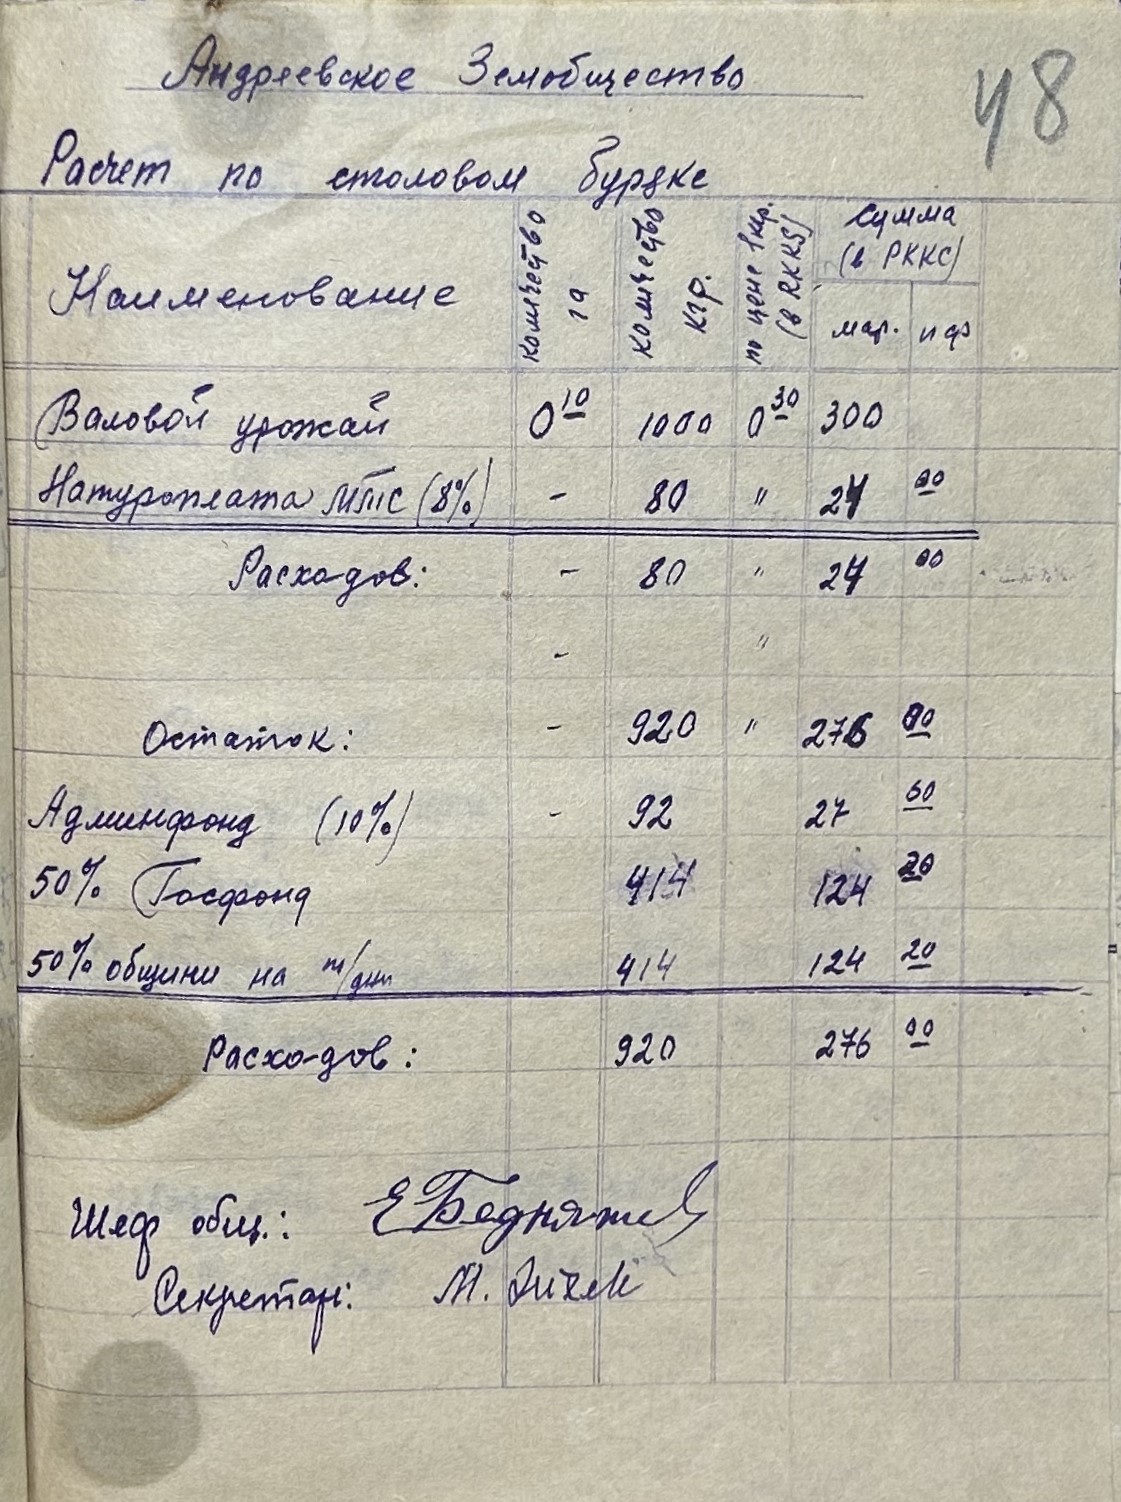 Андреевское Земобщество
48
Расчет по столовом буряке
Наименование
количество га
количество кгр.
по цене 1 кгр. (в RKKS)
Сумма (в РККС)
мар. пф
Валовой урожай 0 10 1000 0 30 300
Натуроплата МТС (8%) - 80 " 24 00
Расходов: - 80 " 24 00
- "
Остаток: - 920 " 276 00
Админфонд (10%) - 92 27 60
50% Госфонд 414 124 20
50% общини на т/дни 414 124 20
Расходов: 920 276 00
Шеф общ.:
Секретар: М.